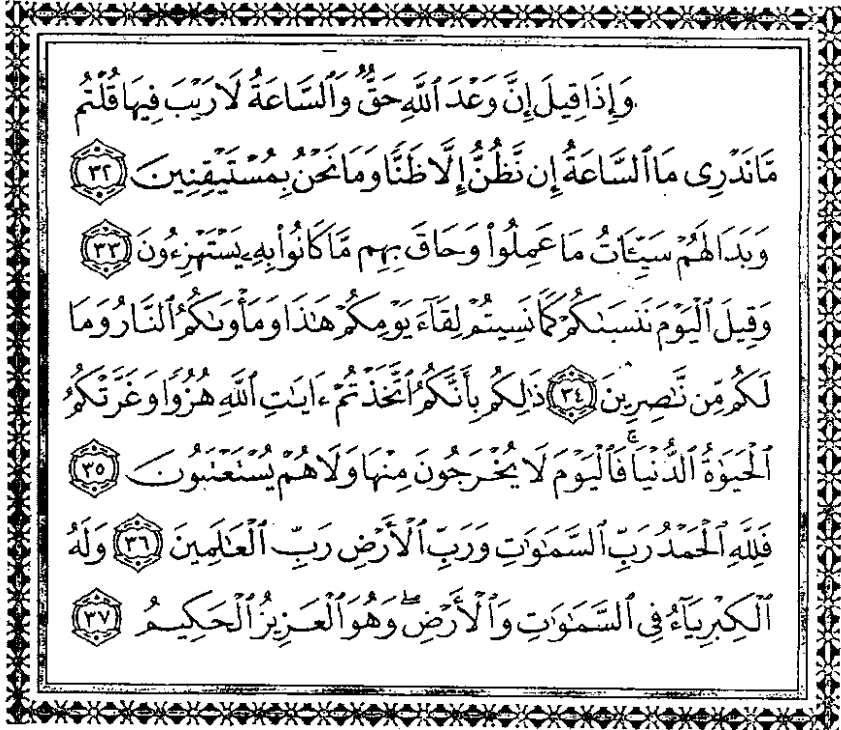 وَإِذَا قِيلَ إِنَّ وَعْدَ ٱللَّهِ حَقٌّ وَٱلسَّاعَةُ لَا رَيْبَ فِيهَا قُلْتُم
مَّا نَدْرِى مَا ٱلسَّاعَةُ إِن نَّظُنُّ إِلَّا ظَنًّا وَمَا نَحْنُ بِمُسْتَيْقِنِينَ ٣٢
وَبَدَا لَهُمْ سَيِّـَٔاتُ مَا عَمِلُوا۟ وَحَاقَ بِهِم مَّا كَانُوا۟ بِهِۦ يَسْتَهْزِءُونَ ٣٣
وَقِيلَ ٱلْيَوْمَ نَنسَىٰكُمْ كَمَا نَسِيتُمْ لِقَآءَ يَوْمِكُمْ هَٰذَا وَمَأْوَىٰكُمُ ٱلنَّارُ وَمَا
لَكُم مِّن نَّٰصِرِينَ ٣٤ ذَٰلِكُم بِأَنَّكُمُ ٱتَّخَذْتُمْ ءَايَٰتِ ٱللَّهِ هُزُوًا وَغَرَّتْكُمُ
ٱلْحَيَوٰةُ ٱلدُّنْيَا ۚ فَٱلْيَوْمَ لَا يُخْرَجُونَ مِنْهَا وَلَا هُمْ يُسْتَعْتَبُونَ ٣٥
فَلِلَّهِ ٱلْحَمْدُ رَبِّ ٱلسَّمَٰوَٰتِ وَرَبِّ ٱلْأَرْضِ رَبِّ ٱلْعَٰلَمِينَ ٣٦ وَلَهُ
ٱلْكِبْرِيَآءُ فِى ٱلسَّمَٰوَٰتِ وَٱلْأَرْضِ ۖ وَهُوَ ٱلْعَزِيزُ ٱلْحَكِيمُ ٣٧